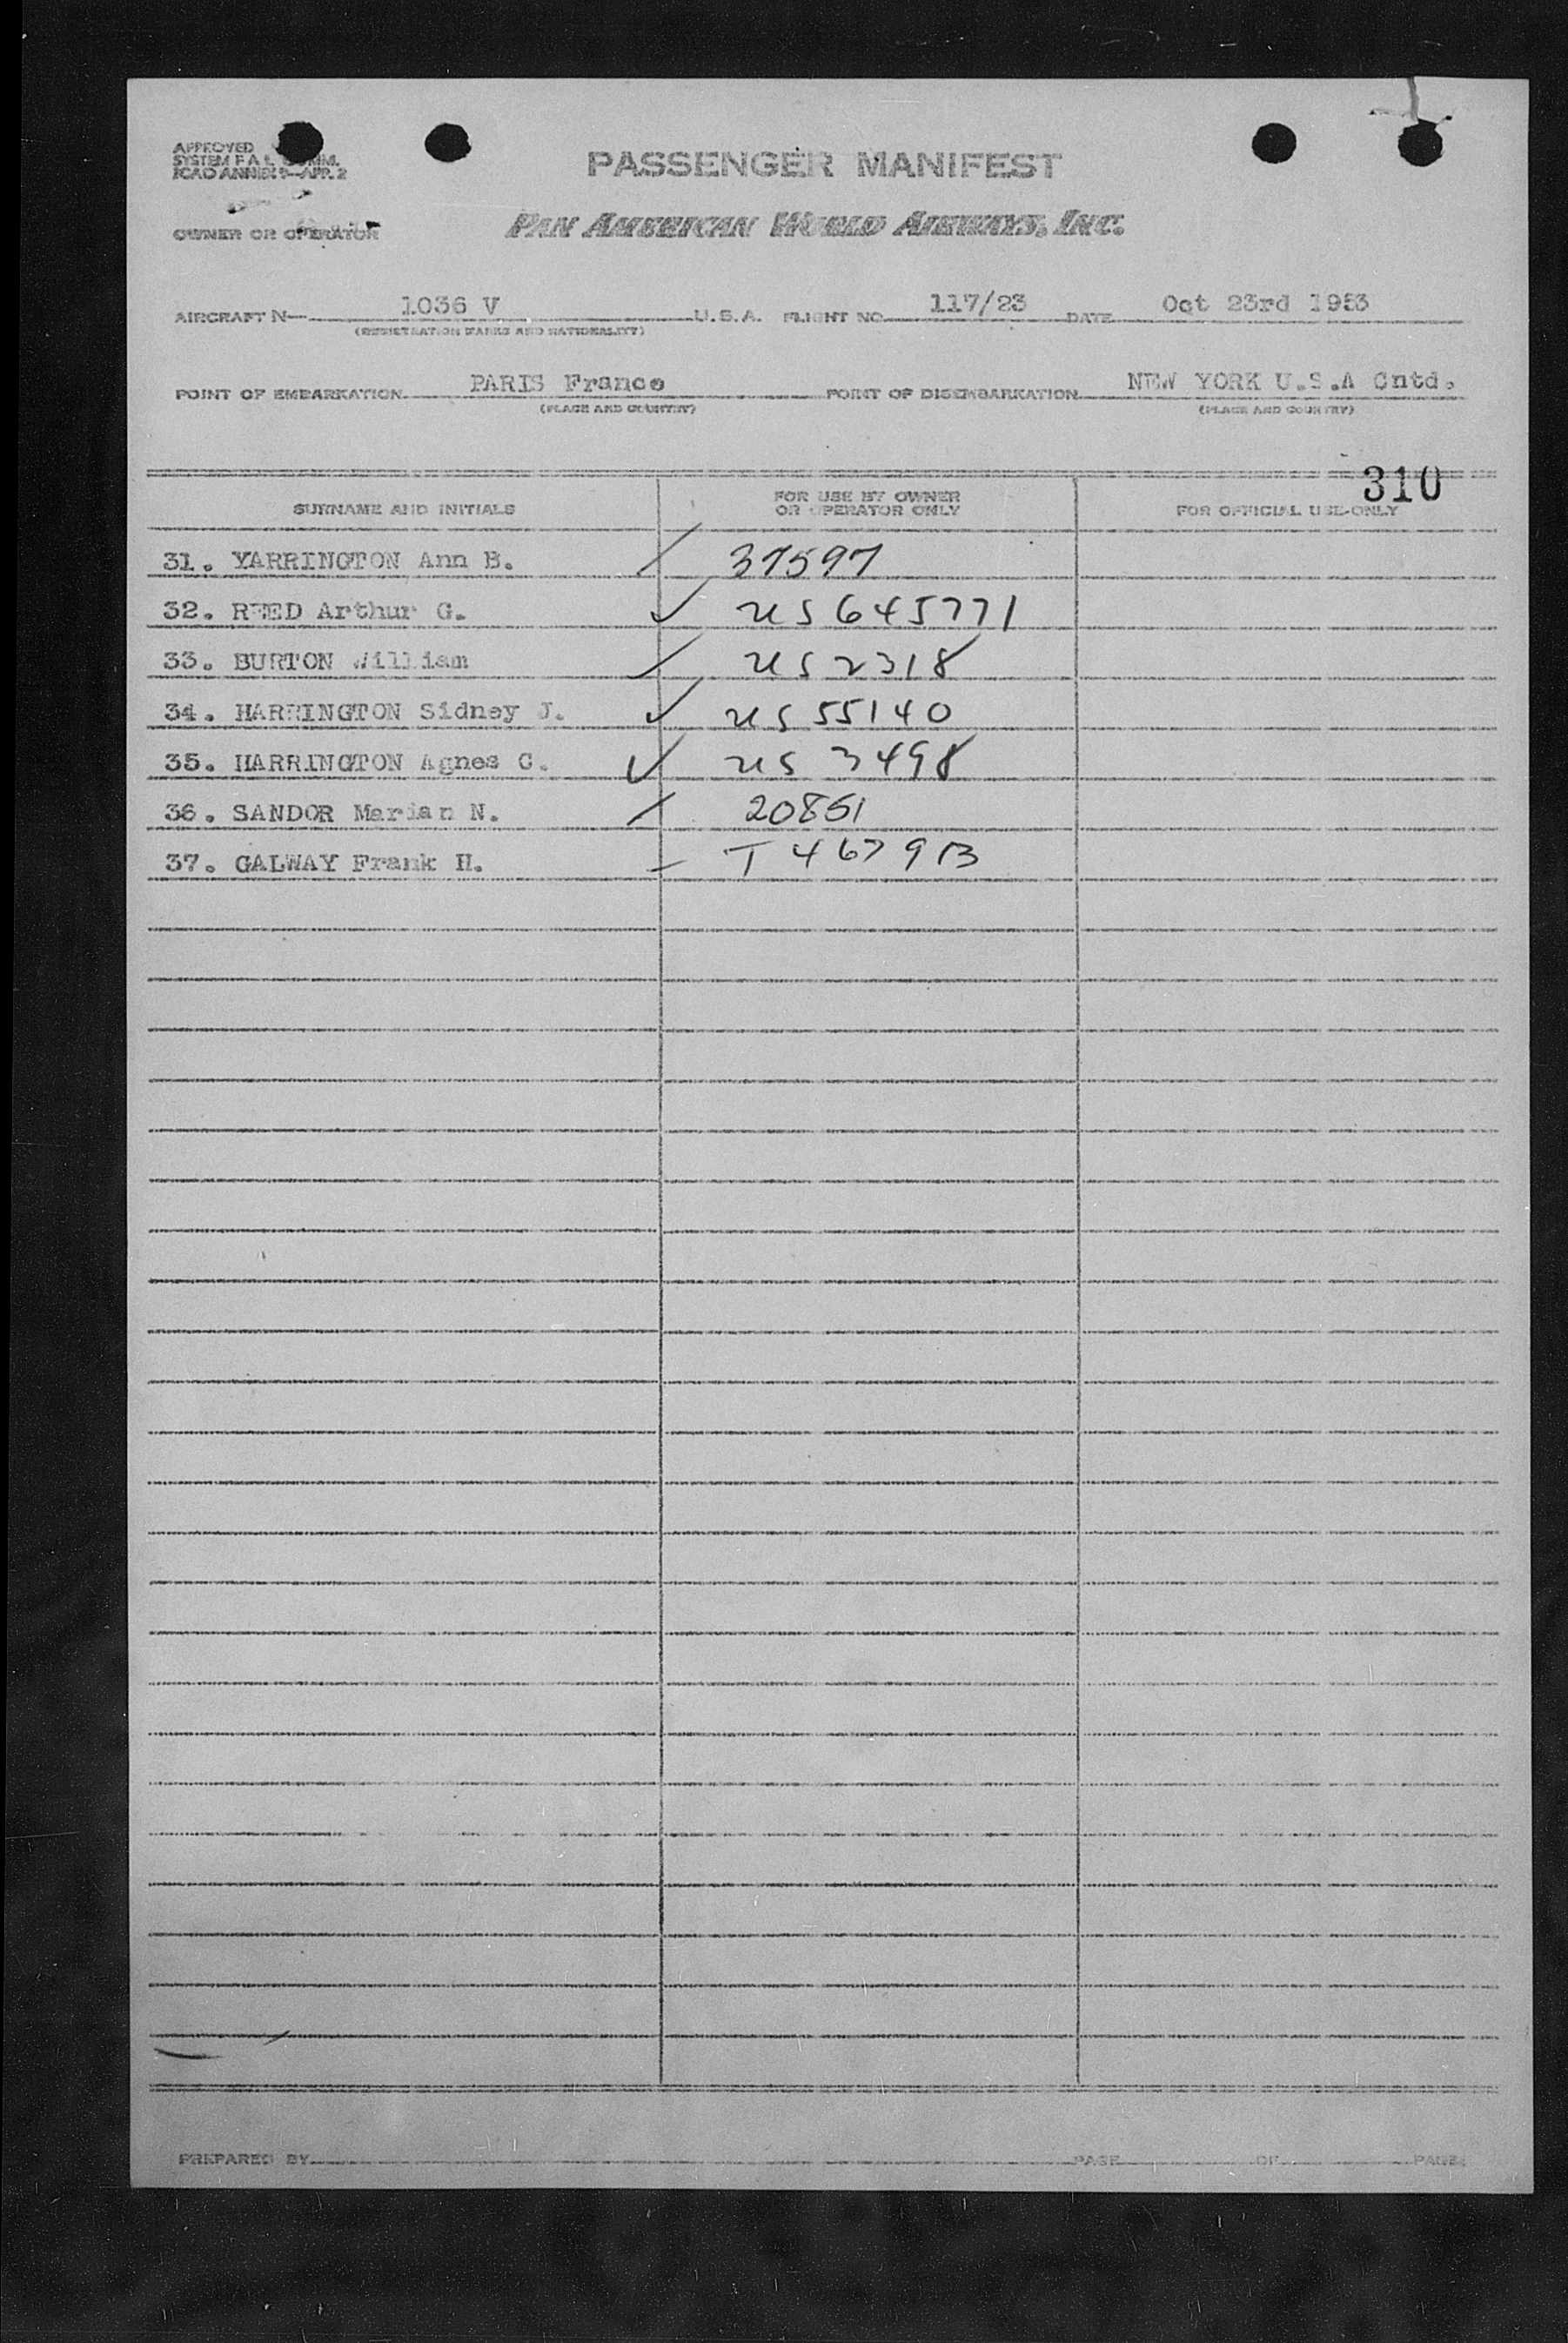 APPROVED
SYSTEM F A L COMM.
ICAO ANNEX 9—APP. 2
PASSENGER MANIFEST
OWNER OR OPERATOR
PAN AMERICAN WORLD AIRWAYS, INC.
AIRCRAFT N— 1036 V U.S.A. FLIGHT NO. 117/23 DATE Oct 23rd 1953
(REGISTRATION MARKS AND NATIONALITY)
POINT OF EMBARKATION PARIS France POINT OF DISEMBARKATION NEW YORK U.S.A Cntd.
(PLACE AND COUNTRY) (PLACE AND COUNTRY)
310
SURNAME AND INITIALS FOR USE BY OWNER OR OPERATOR ONLY FOR OFFICIAL USE ONLY
31. YARRINGTON Ann B. 37597
32. REED Arthur G. US 645771
33. BURTON William US 2318
34. HARRINGTON Sidney J. US 55140
35. HARRINGTON Agnes C. US 3498
36. SANDOR Marian N. 20851
37. GALWAY Frank H. T 46791B
PREPARED BY PAGE OF PAGE